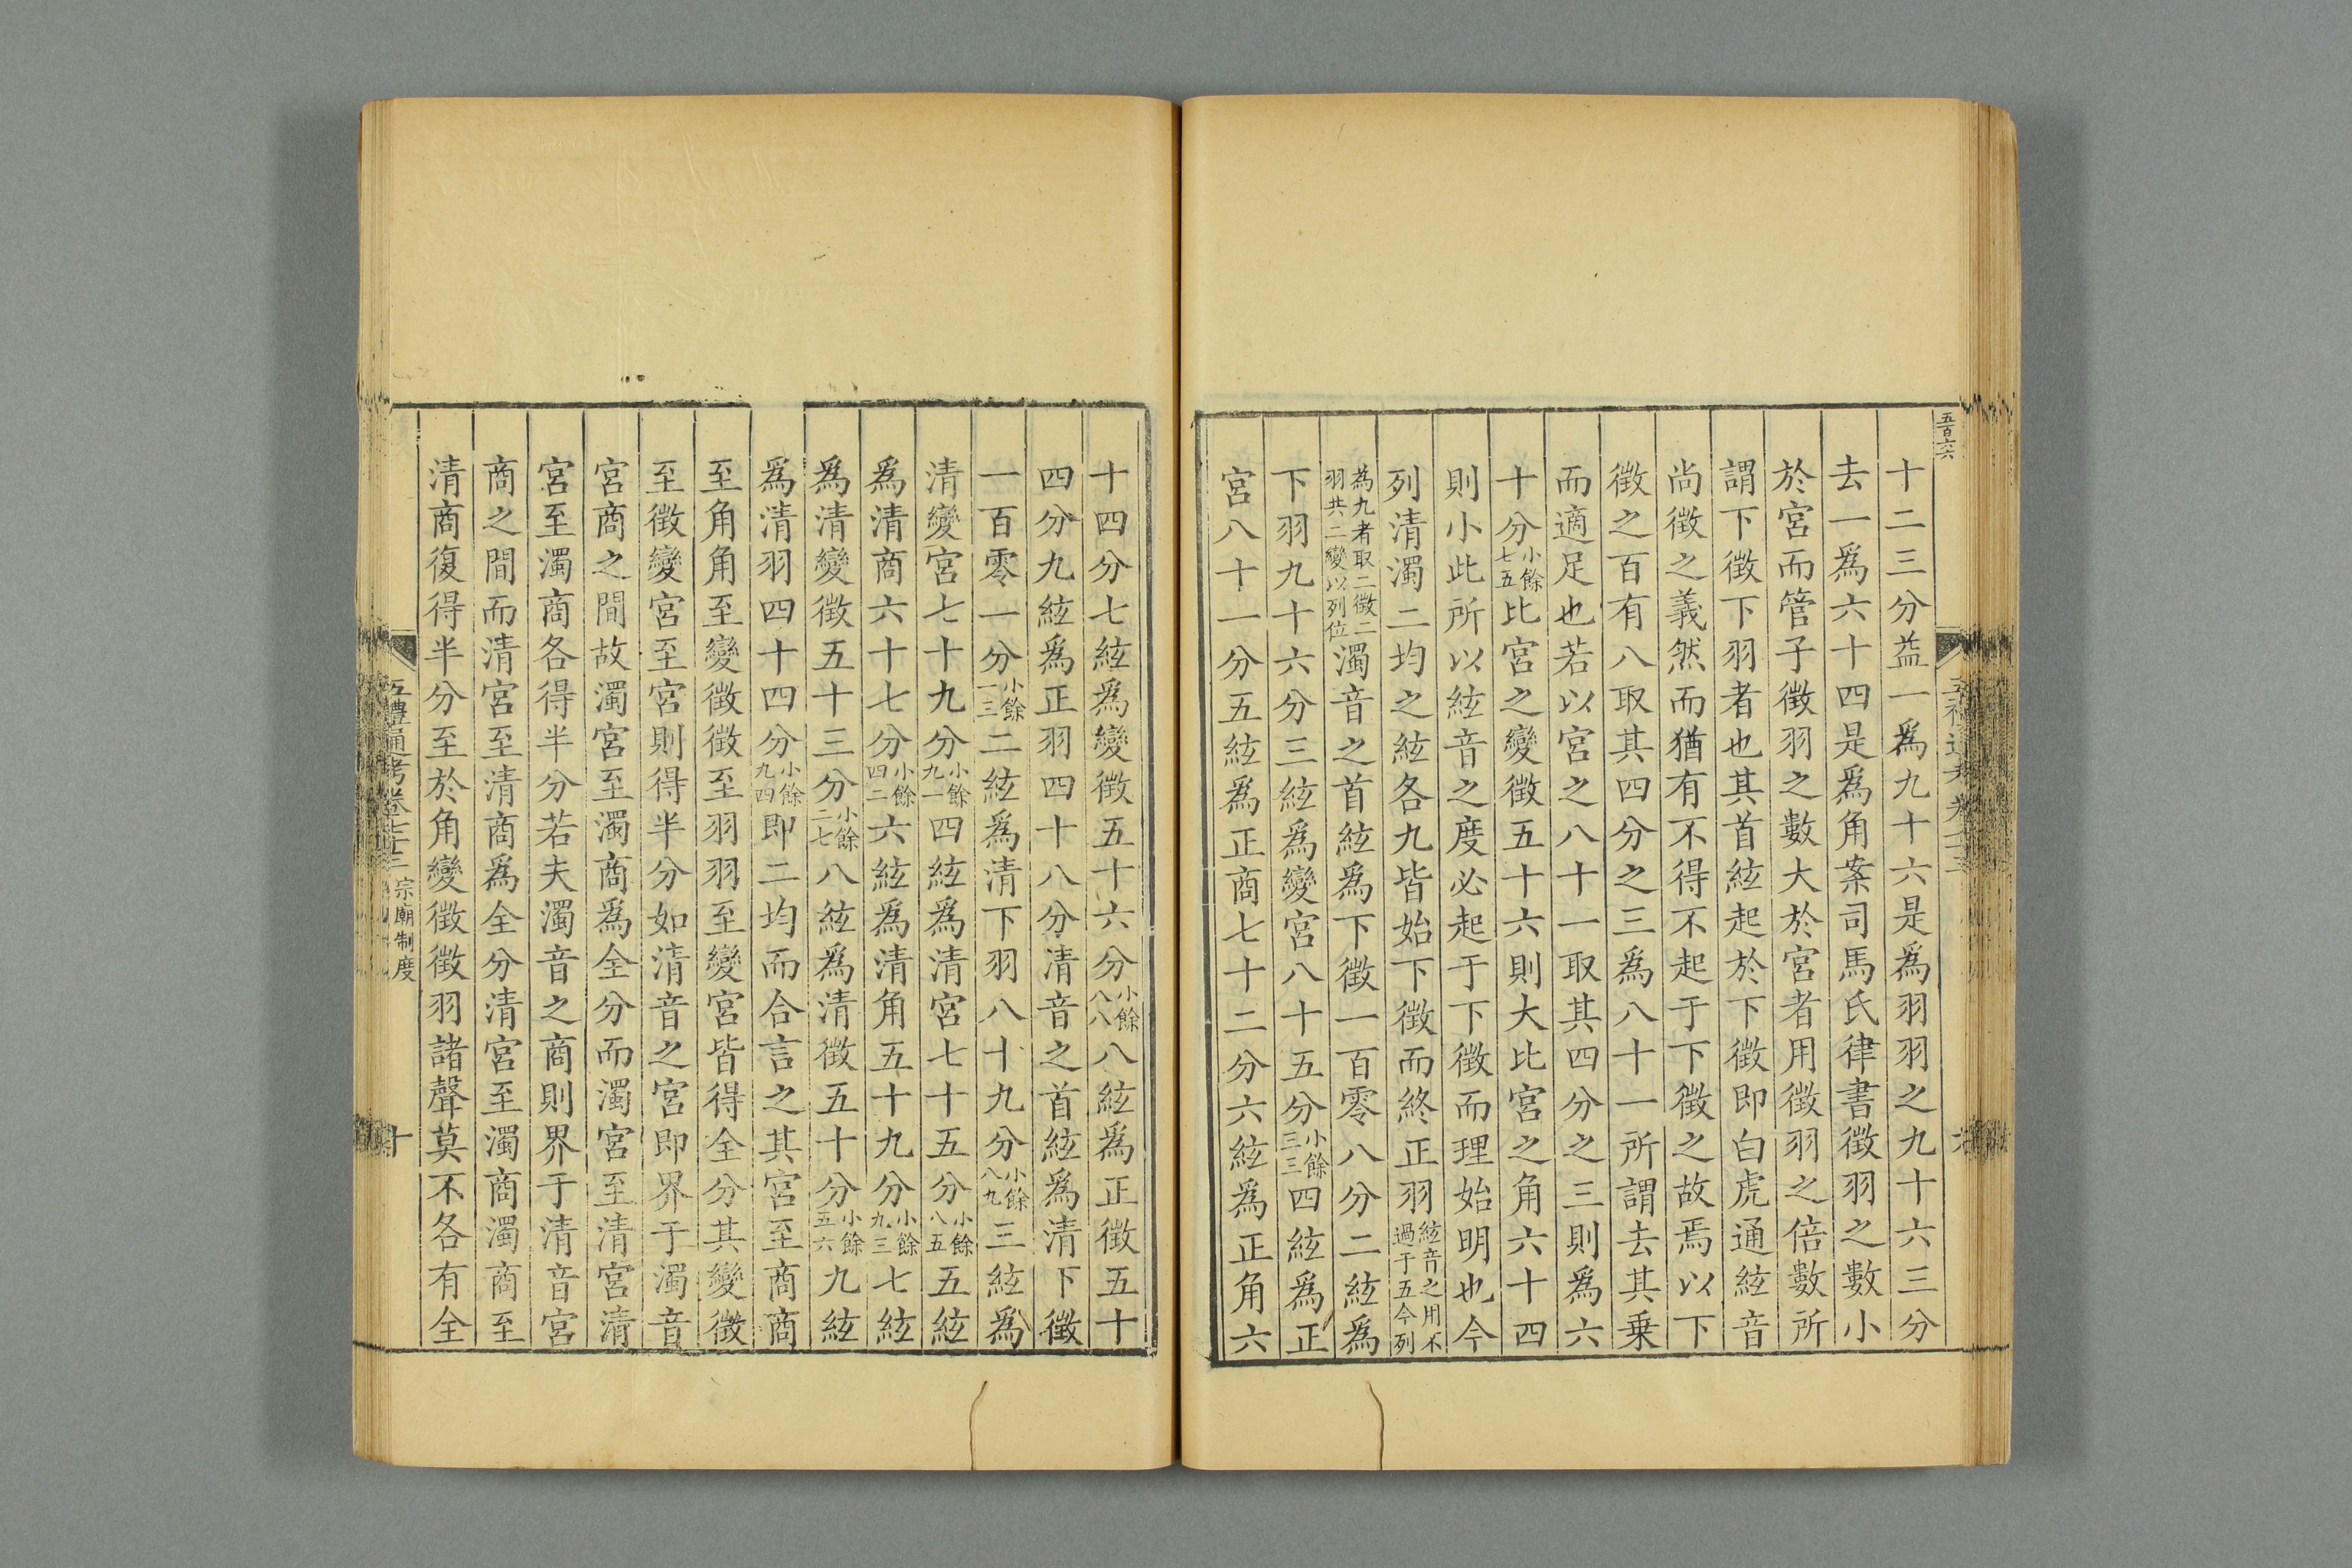 五百六六
十二三分益一爲九十六是爲羽羽之九十六三分
去一爲六十四是爲角案司馬氏律書徵羽之數小
於宮而管子徵羽之數大於宮者用徵羽之倍數所
謂下徵下羽者也其首絃起於下徵即白虎通絃音
尚徵之義然而猶有不得不起于下徵之故焉以下
徵之百有八取其四分之三爲八十一所謂去其乗
而適足也若以宮之八十一取其四分之三則爲六
十分小餘七五比宮之變徵五十六則大比宮之角六十四
則小此所以絃音之度必起于下徵而理始明也今
列清濁二均之絃各九皆始下徵而終正羽絃音之用不過于五今列
爲九者取二徵二羽共二變以列位濁音之首絃爲下徵一百零八分二絃爲
下羽九十六分三絃爲變宮八十五分小餘三三四絃爲正
宮八十一分五絃爲正商七十二分六絃爲正角六
十四分七絃爲變徵五十六分小餘八八八絃爲正徵五十
四分九絃爲正羽四十八分清音之首絃爲清下徵
一百零一分小餘一三二絃爲清下羽八十九分小餘八九三絃爲
清變宮七十九分小餘九一四絃爲清宮七十五分小餘八五五絃
爲清商六十七分小餘四二六絃爲清角五十九分小餘九三七絃
爲清變徵五十三分小餘二七八絃爲清徵五十分小餘五六九絃
爲清羽四十四分小餘九四即二均而合言之其宮至商商
至角角至變徵徵至羽羽至變宮皆得全分其變徵
至徵變宮至宮則得半分如清音之宮即界于濁音
宮商之間故濁宮至濁商爲全分而濁宮至清宮清
宮至濁商各得半分若夫濁音之商則界于清音宮
商之間而清宮至清商爲全分清宮至濁商濁商至
清商復得半分至於角變徵徵羽諸聲莫不各有全
五禮通考卷七十三 宗廟制度 十